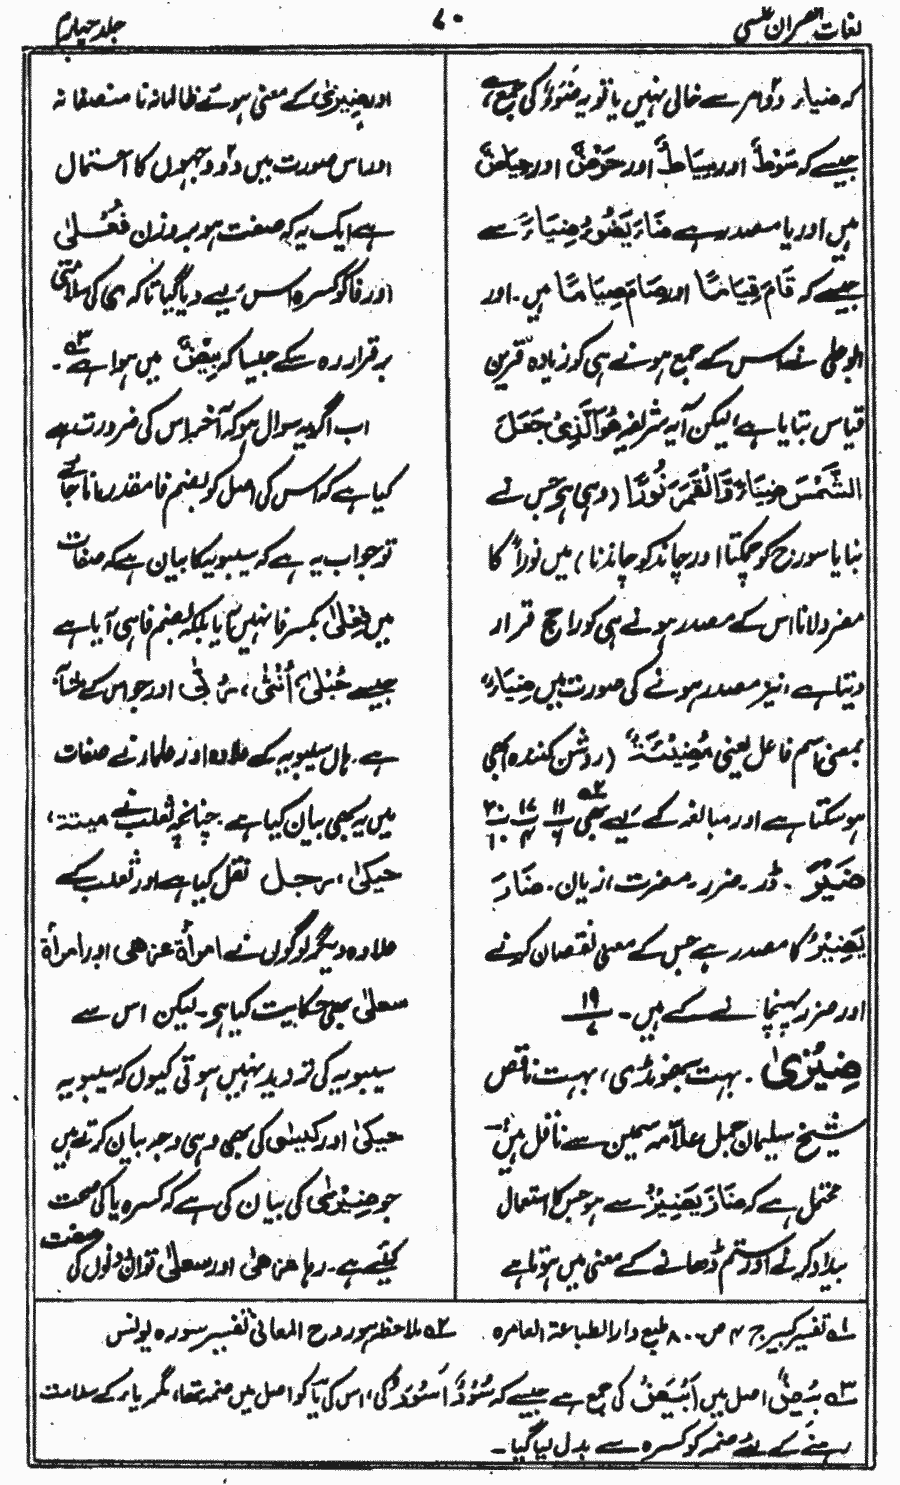 لغات القرآن
۷۰
جلد چہارم
کہ ضیاء دو امر سے خالی نہیں یا تو یہ ضَوْءٌ کی جمع ہے،
جیسے کہ سَوْطٌ اور سِیَاطٌ اور حَوْضٌ اور حِیَاضٌ
میں اور یا مصدر ہے ضَاءَ یَضُوْءُ ضِیَاءً سے
جیسے کہ قَامَ قِیَامًا اور صَامَ صِیَامًا میں۔ اور
ابوعلی نے اس کے جمع ہونے ہی کو زیادہ قرین
قیاس بتایا ہے لیکن آیہ شریفہ هُوَ الَّذِیْ جَعَلَ
الشَّمْسَ ضِیَاءً وَّالْقَمَرَ نُوْرًا (وہی ہے جس نے
بنایا سورج کو چمکتا اور چاند کو چاندنا) میں نورا کا
مفرد لانا اس کے مصدر ہونے ہی کو راجح قرار
دیتا ہے، نیز مصدر ہونے کی صورت میں ضِیَاءٌ،
بمعنی اسم فاعل یعنی مُضِیْئَةٌ، (روشن کنندہ) بھی
ہو سکتا ہے اور مبالغہ کے لیے بھی
ضَیْرٌ ۔ ڈر۔ ضرر۔ مضرت، زیان۔ ضَارَ
یَضِیْرُ کا مصدر ہے جس کے معنی نقصان کرنے
اور ضرر پہنچانے کے ہیں۔ ۱۹/۷
ضِیْزٰی ۔ بہت بھونڈی، بہت ناقص
شیخ سلیمان جمل علامہ سمین سے ناقل ہیں
محتمل ہے کہ ضَازَ یَضِیْزُ سے ہو جس کا استعمال
بیداد کرنے اور ستم ڈھانے کے معنی میں ہوتا ہے
اور ضِیْزٰی کے معنی ہوتے ظالمانہ نا منصفانہ
اور اس صورت میں دو وجہوں کا احتمال
ہے ایک یہ کہ صفت ہو بروزن فُعْلٰی
اور فا کو کسرہ اس لیے دیا گیا تا کہ ی کی سلامتی
برقرار رہ سکے جیسا کہ بِیْضٌ میں ہوا ہے ۳؎۔
اب اگر یہ سوال ہو کہ آخر اس کی ضرورت ہے
کیا ہے کہ اس کی اصل کو بضم فا مقدر مانا جائے
تو جواب یہ ہے کہ سیبویہ کا بیان ہے کہ صفات
میں فِعْلٰی بکسر فا نہیں آیا بلکہ بضم فا ہی آیا ہے
جیسے حُبْلٰی، اُنْثٰی، اور جو اس کے مشابہ
ہے۔ ہاں سیبویہ کے علاوہ اور علماء نے صفات
میں یہ بھی بیان کیا ہے۔ چنانچہ ثعلب نے
حیکی، رجل نقل کیا ہے اور ثعلب کے
علاوہ دیگر لوگوں نے امرأة عزهی اور امرأة
سعلی بھی حکایت کیا ہے۔ لیکن اس سے
سیبویہ کی تردید نہیں ہوتی کیوں کہ سیبویہ
حیکی اور کیسی کی بھی وہی وجہ بیان کرتے ہیں
جو ضِیْزٰی کی بیان کی ہے کہ کسرہ یا کی صحت
کیلئے ہے۔ رہا عزهی اور سعلی تو ان دونوں کی صفت
۱؎ تفسیر کبیر ج ۴ ص ۸۰۰ طبع دار الطباعة العامرہ ۲؎ ملاحظہ ہو روح المعانی تفسیر سورہ یونس
۳؎ بِیْضٌ اصل میں اَبْیَضُ کی جمع ہے جیسے کہ سُوْدٌ اَسْوَدُ کی، اس کی با کو اصل میں ضمہ تھا، مگر یا کے سلامت
رہنے کے لئے ضمہ کو کسرہ سے بدل لیا گیا۔